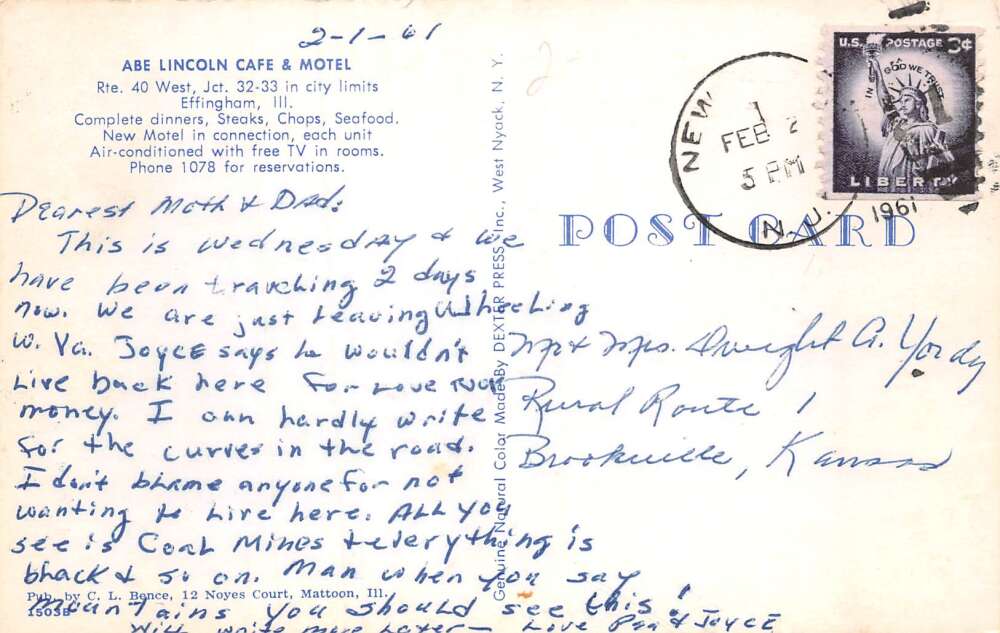 2-1-61
ABE LINCOLN CAFE & MOTEL
Rte. 40 West, Jct. 32-33 in city limits
Effingham, Ill.
Complete dinners, Steaks, Chops, Seafood.
New Motel in connection, each unit
Air-conditioned with free TV in rooms.
Phone 1078 for reservations.
Dearest Moth & Dad:
This is wednesday & we
have been traveling 2 days
now. We are just leaving Wheeling
W. Va. Joyce says he wouldn't
live back here for love nor
money. I can hardly write
for the curves in the road.
I don't blame anyone for not
wanting to live here. All you
see is Coal Mines & everything is
black & so on. Man when you say
mountains you should see this!
Will write more later - Love & Joyce
Pub. by C. L. Bence, 12 Noyes Court, Mattoon, Ill.
1503B
Genuine Natural Color Made By DEXTER PRESS, Inc., West Nyack, N. Y.
NEW
1
FEB 2
5 PM
N.J.
1961
U.S. POSTAGE 3¢
IN GOD WE TRUST
LIBERTY
POST CARD
Mr & Mrs. Dwight A. Yordy
Rural Route 1
Brookville, Kansas